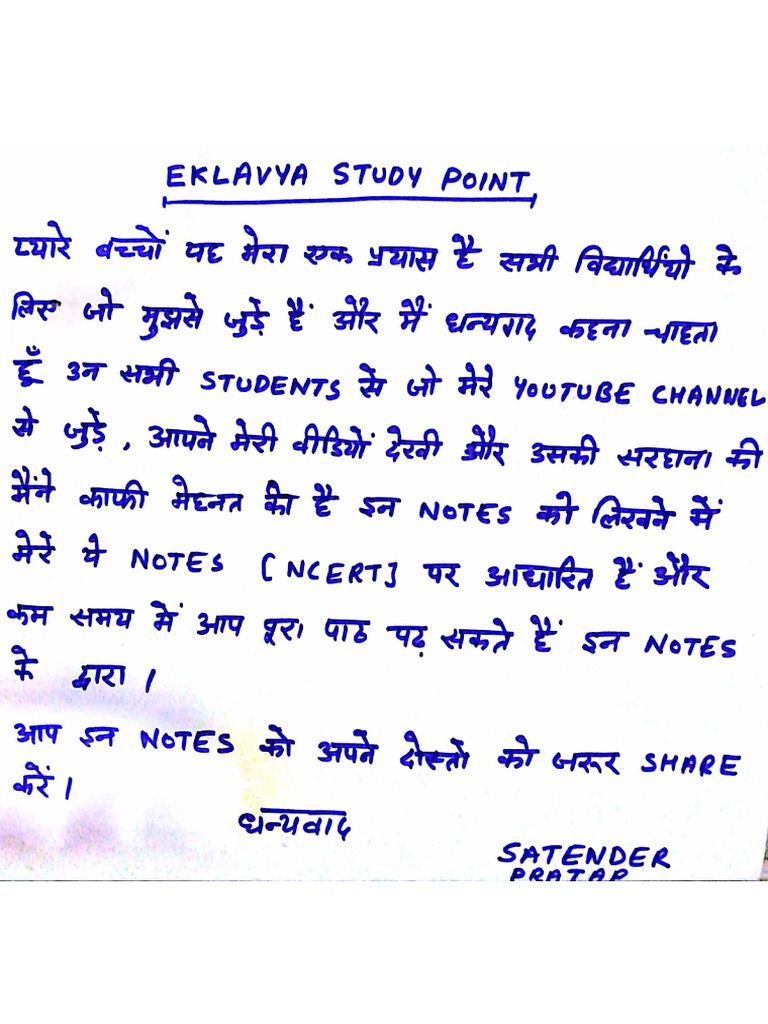 EKLAVYA STUDY POINT
प्यारे बच्चों यह मेरा एक प्रयास है सभी विद्यार्थियो के
लिए जो मुझसे जुड़ें हैं और मैं धन्यवाद कहना चाहता
हूँ उन सभी STUDENTS से जो मेरे YOUTUBE CHANNEL
से जुड़ें, आपने मेरी वीडियों देखी और उसकी सरहाना की
मैंने काफी मेहनत की है इन NOTES को लिखने में
मेरे ये NOTES [NCERT] पर आधारित हैं और
कम समय में आप पूरा पाठ पढ़ सकते हैं इन NOTES
के द्वारा।
आप इन NOTES को अपने दोस्तो को जरूर SHARE
करें।
धन्यवाद
SATENDER
PRATAP